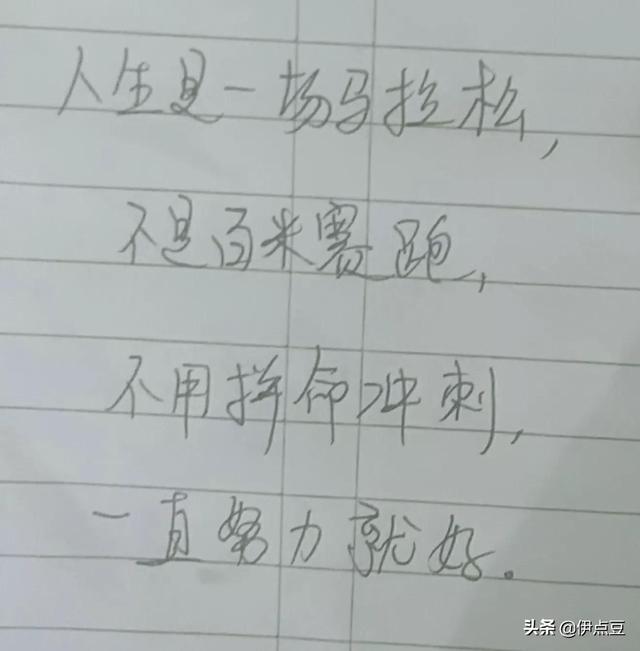 人生是一场马拉松,
不是百米赛跑,
不用拼命冲刺,
一直努力就好.
头条 @伊点豆